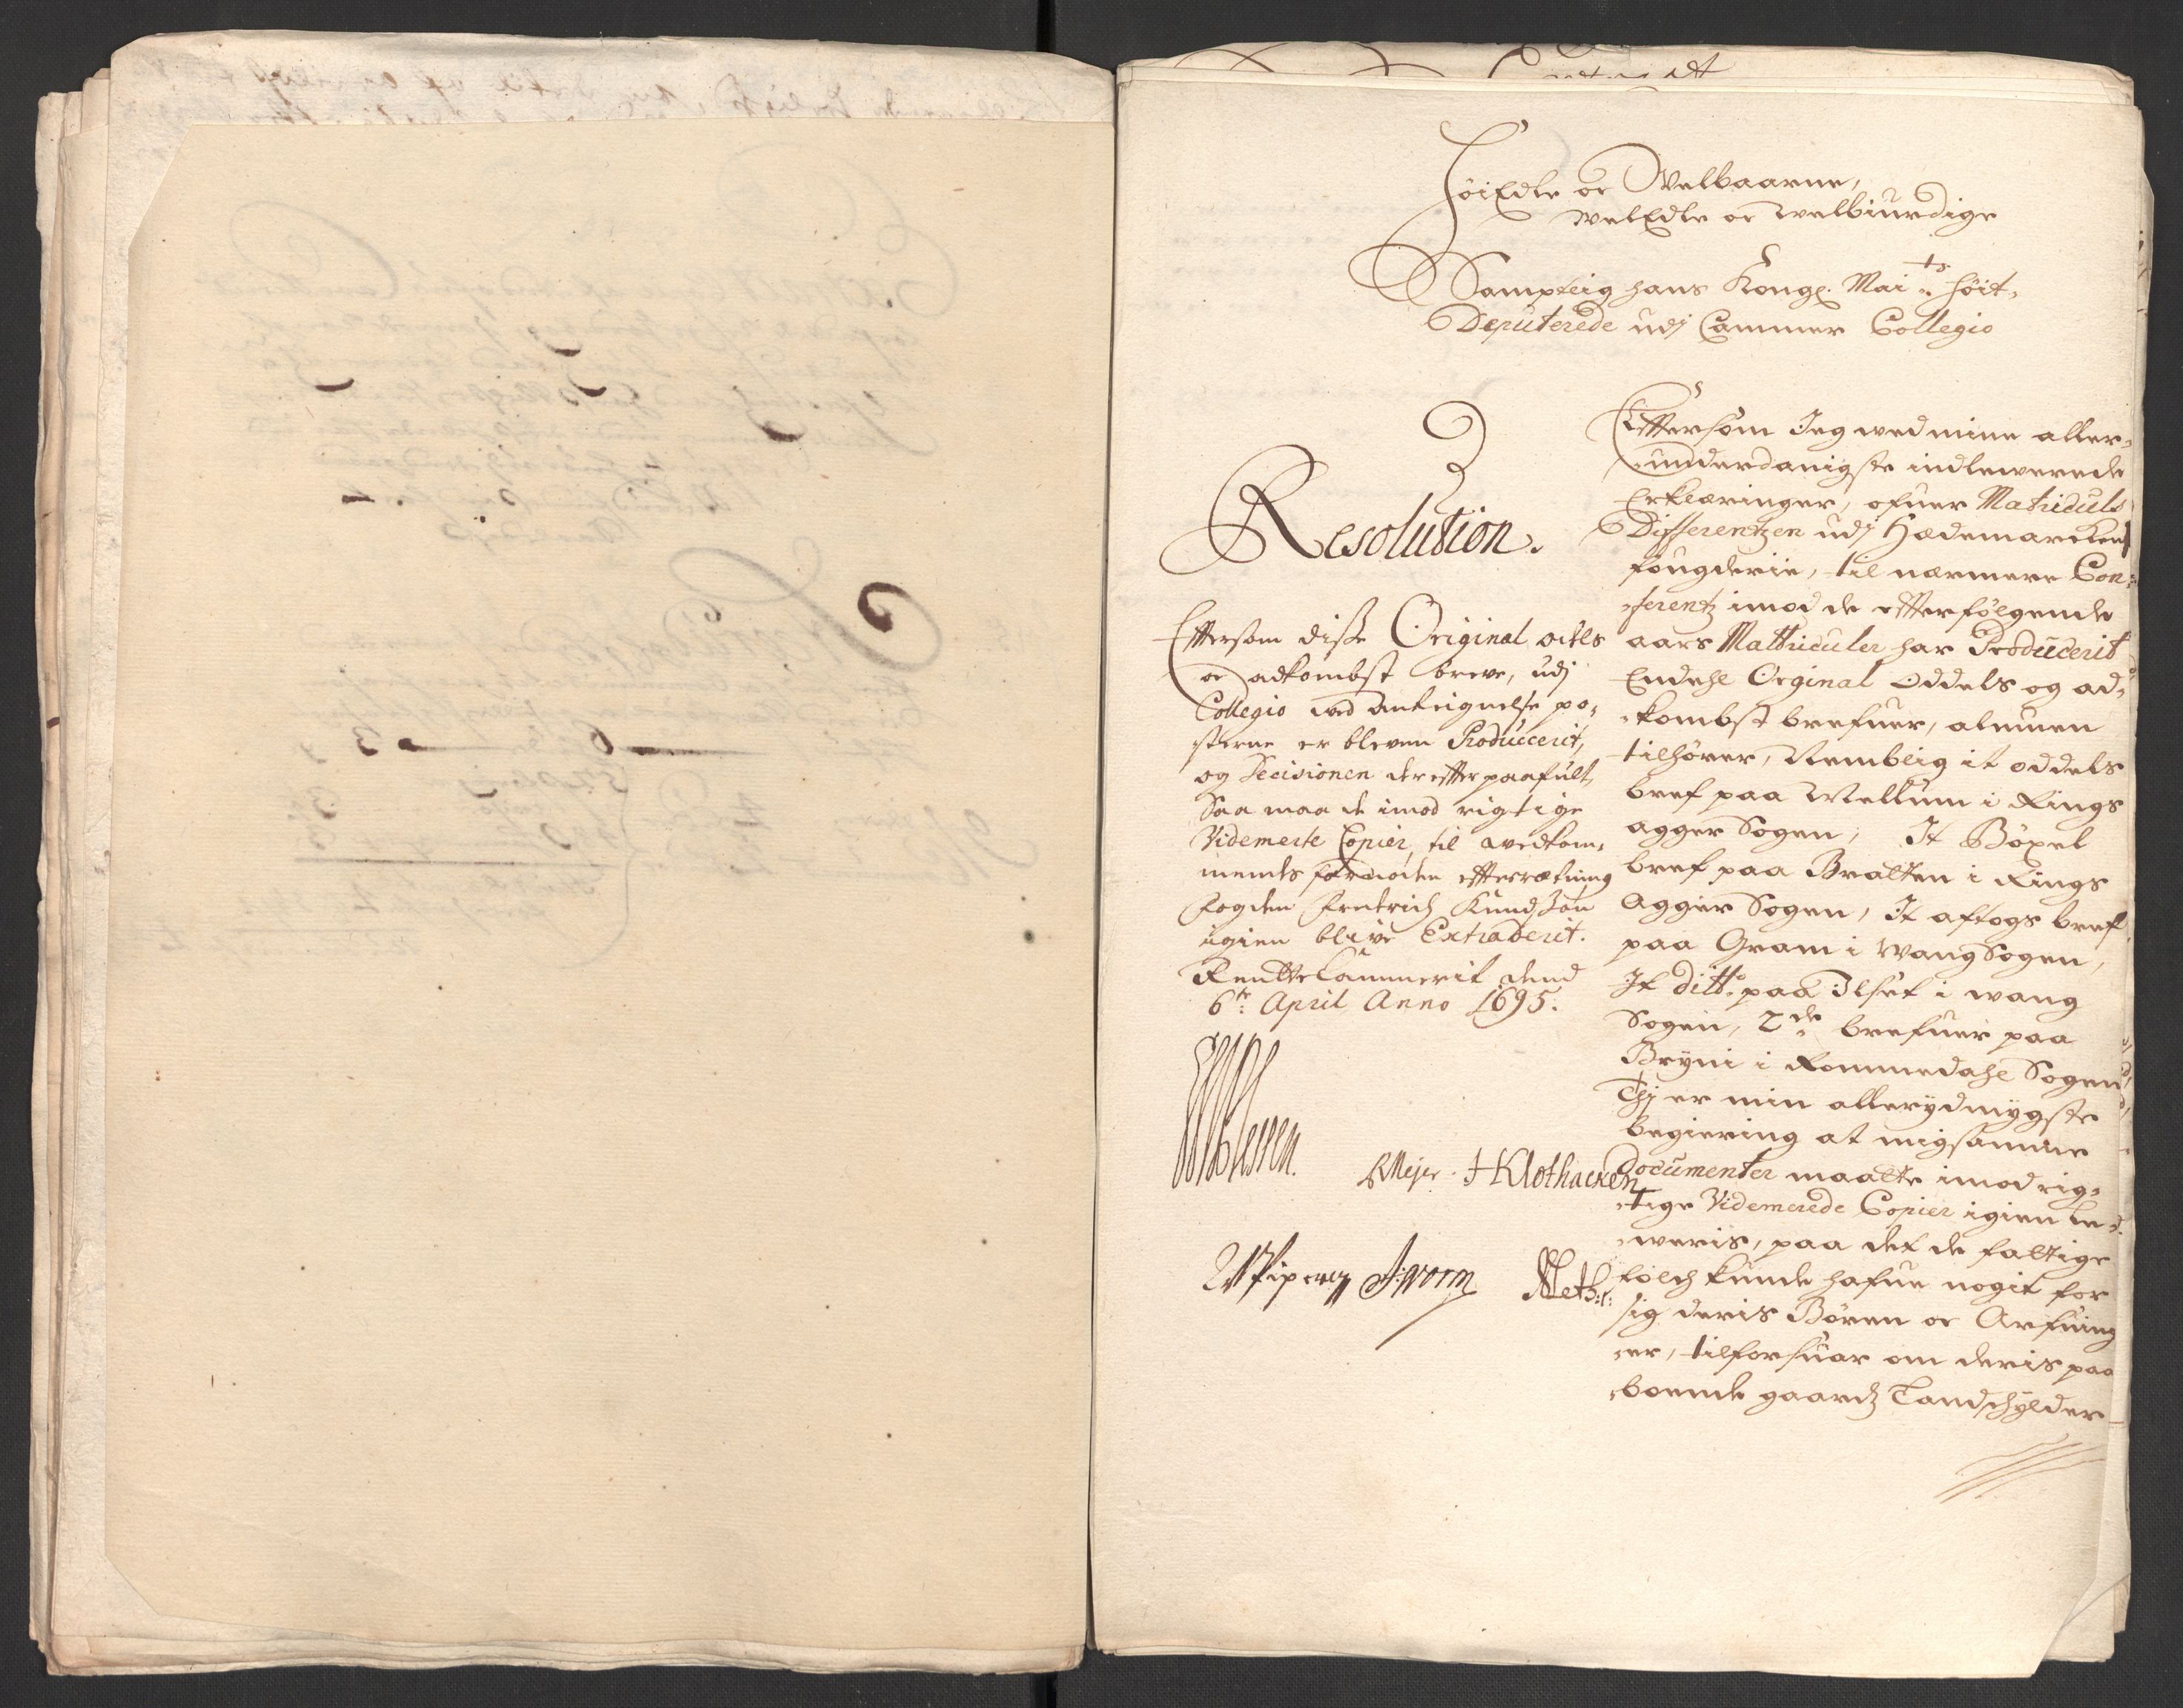 HöiEdle oc Velbaarne,
WelEdle oc Welbiurdige
Sampteig hans Kongl. Mai.ts höit-
Deputerede udj Cammer Collegio
Resolution.
Eftersom disse Original odels
oc adkombst breve, udj
Collegio ved Anteignelse po-
sterne er bleven Producerit,
og Decisionen der efter paafult,
Saa maa de imod rigtige
Videmerte Copier, til vedkom-
mendes fornöden efterretning
Fogden Fredrich Knudsön
igien blive Extraderit.
Rentte Cammerit dend
6te April Anno 1695.
Meyer. H Klothacken
Worm
Eftersom Jeg wed mine aller-
underdanigste indlewerede
Erklæringer, ofuer Matriculs
Differentzen udj Hædemarcken
fougderie, til nærmere Con-
ferentz imod de efterfölgende
aars Matthiculer har Producerit
Endehl Orginal Oddels og ad-
kombst brefuer, almuen
tilhörer, Nemblig it oddels
bref paa Wellum i Rings
agger Sogen, It Böxel
bref paa Bratten i Rings
Agger Sogen, It aftogs bref
paa Gram i Wang Sogen,
It ditto paa Ilset i Wang
Sogen, 2de brefuer paa
Bryni i Rommedahl Sogen
Thj er min allerydmygste
begiering at mig samme
Documenter maatte imod rig-
tige Videmerede Copier igien le-
weris, paa det de fattige
folch kunde hafue nogit for
sig deris Bören oc Arfuing
er, til forsuar om deris paa
boende gaardz Landschylder